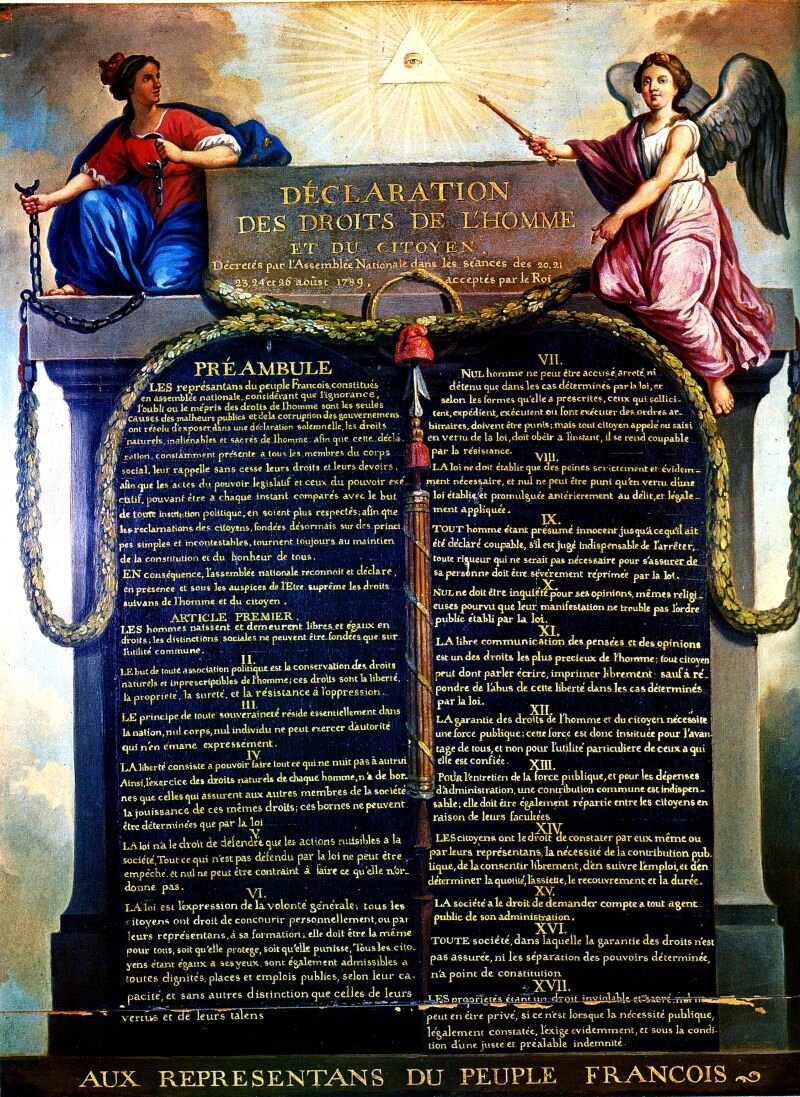 DÉCLARATION
DES DROITS DE L'HOMME
ET DU CITOYEN,
Décretés par l'Assemblée Nationale dans les séances des 20, 21
23, 24 et 26 aoûst 1789, acceptés par le Roi
PRÉAMBULE
LES représantans du peuple Francois, constitués
en assemblée nationale, considérant que l'ignorance,
l'oubli ou le mépris des droits de l'homme sont les seules
causes des malheurs publics et de la corruption des gouvernemens
ont résolu d'exposer dans une déclaration solemnelle, les droits
naturels, inaliénables et sacrés de l'homme: afin que cette décla-
ration, constamment présente a tous les membres du corps
social, leur rappelle sans cesse leurs droits et leurs devoirs;
afin que les actes du pouvoir législatif et ceux du pouvoir exé-
cutif, pouvant être à chaque instant comparés avec le but
de toute institution politique, en soient plus respectés; afin que
les reclamations des citoyens, fondées désormais sur des princi-
pes simples et incontestables, tournent toujours au maintien
de la constitution et du bonheur de tous.
EN conséquence, l'assemblée nationale reconnoit et déclare,
en presence et sous les auspices de l'Etre suprême les droits
suivans de l'homme et du citoyen.
ARTICLE PREMIER.
LES hommes naissent et demeurent libres et égaux en
droits; les distinctions sociales ne peuvent être fondées que sur
l'utilité commune.
II.
LE but de toute association politique est la conservation des droits
naturels et inprescriptibles de l'homme; ces droits sont la liberté,
la propriété, la sureté, et la résistance à l'oppression.
III.
LE principe de toute souveraineté réside essentiellement dans
la nation, nul corps, nul individu ne peut exercer d'autorité
qui n'en émane expressement.
IV.
LA liberté consiste a pouvoir faire tout ce qui ne nuit pas à autrui
Ainsi, l'exercice des droits naturels de chaque homme, n'a de bor-
nes que celles qui assurent aux autres membres de la société
la jouissance de ces mêmes droits; ces bornes ne peuvent
être déterminées que par la loi
V.
LA loi n'a le droit de défendre que les actions nuisibles a la
société, Tout ce qui n'est pas défendu par la loi ne peut être
empêché, et nul ne peut être contraint à faire ce qu'elle n'or-
donne pas.
VI.
LA loi est l'expression de la volonté générale; tous les
citoyens ont droit de concourir personnellement, ou par
leurs représentans, à sa formation; elle doit être la même
pour tous, soit qu'elle protege, soit qu'elle punisse, Tous les cito-
yens étant égaux a ses yeux, sont également admissibles a
toutes dignités, places et emplois publics, selon leur ca-
pacité, et sans autres distinction que celles de leurs
vertus et de leurs talens
VII.
NUL homme ne peut être accusé, arreté, ni
détenu que dans les cas déterminés par la loi, et
selon les formes qu'elle a prescrites, ceux qui sollici-
tent, expédient, exécutent ou font exécuter des ordres ar-
bitraires, doivent être punis; mais tout citoyen appelé ou saisi
en vertu de la loi, doit obéir a l'instant, il se rend coupable
par la résistance.
VIII.
LA loi ne doit établir que des peines strictement et évidem-
ment nécessaire, et nul ne peut être puni qu'en vertu d'une
loi établie et promulguée antérierement au délit, et légale-
ment appliquée.
IX.
TOUT homme étant présumé innocent jusqu'a ce qu'il ait
été déclaré coupable, s'il est jugé indispensable de l'arrêter,
toute rigueur qui ne serait pas nécessaire pour s'assurer de
sa personne doit être sévérement réprimée par la loi.
X.
NUL ne doit être inquiété pour ses opinions, mêmes religi-
euses pourvu que leur manifestation ne trouble pas l'ordre
public établi par la loi.
XI.
LA libre communication des pensées et des opinions
est un des droits les plus precieux de l'homme; tout citoyen
peut dont parler écrire, imprimer librement: sauf à ré-
pondre de l'abus de cette liberté dans les cas déterminés
par la loi.
XII.
LA garantie des droits de l'homme et du citoyen nécessite
une force publique; cette force est donc instituée pour l'avan-
tage de tous, et non pour l'utilité particuliere de ceux a qui
elle est confiée.
XIII.
POUR l'entretien de la force publique, et pour les dépenses
d'administration, une contribution commune est indispen-
sable; elle doit être également répartie entre les citoyens en
raison de leurs facultées
XIV.
LES citoyens ont le droit de constater par eux même ou
par leurs représentans, la nécessité de la contribution pub-
lique, de la consentir librement, d'en suivre l'emploi, et d'en
déterminer la quotité, l'assiette, le recouvrement et la durée.
XV.
LA société a le droit de demander compte a tout agent
public de son administration.
XVI.
TOUTE société, dans laquelle la garantie des droits n'est
pas assurée, ni les séparation des pouvoirs déterminée,
n'a point de constitution
XVII.
LES proprietés étant un droit inviolable et sacré, nul ne
peut en être privé, si ce n'est lorsque la nécessité publique,
légalement constatée, l'exige evidemment, et sous la condi-
tion d'une juste et préalable indemnité.
AUX REPRESENTANS DU PEUPLE FRANCOIS